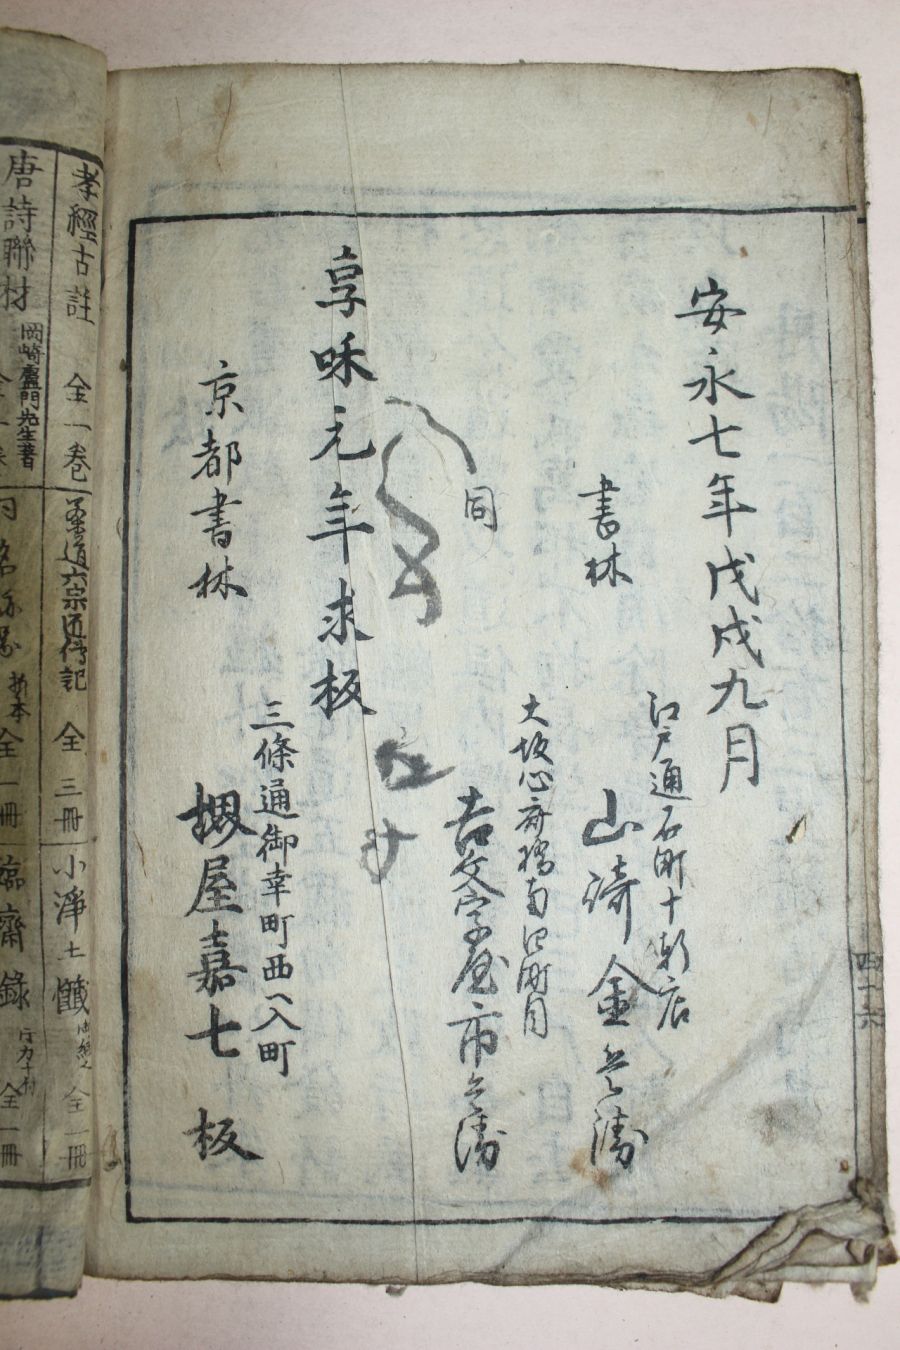 安永七年戊戌九月
江戸通石町十軒店
書林
山崎金兵衛
大坂心斎橋南四町目
同
吉文字屋市兵衛
享和元年求板
三條通御幸町西ヘ入町
京都書林
堺屋嘉七板
四十六
孝經古註 全一卷
六宗 傳記 全三冊
小淨土 全一冊
唐詩聯材 岡崎廬門先生著
折本 全一冊
臨齋錄 全一冊